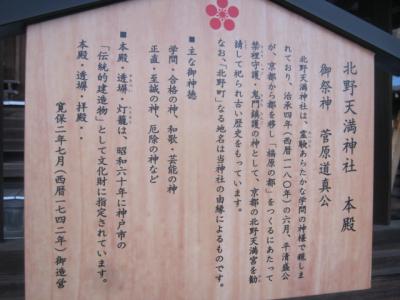 北野天満神社　本殿
御祭神　菅原道真公
北野天満神社は、霊験あらたかな学問の神様で親しま
れており、治承四年（西暦一一八〇年）の六月、平清盛公
が、京都から都を移し「福原の都」をつくるにあたって
禁裡守護、鬼門鎮護の神として、京都の北野天満宮を勧
請して祀られ古い歴史をもっています。
なお、「北野町」なる地名は当神社の由縁によるものです。
■主な御神徳
学問・合格の神、和歌・芸能の神
正直・至誠の神、厄除の神など
■本殿・透塀・灯籠は、昭和六十年に神戸市の
「伝統的建造物」として文化財に指定されています。
本殿・透塀・拝殿・・
寛保二年七月（西暦一七四二年）御造営